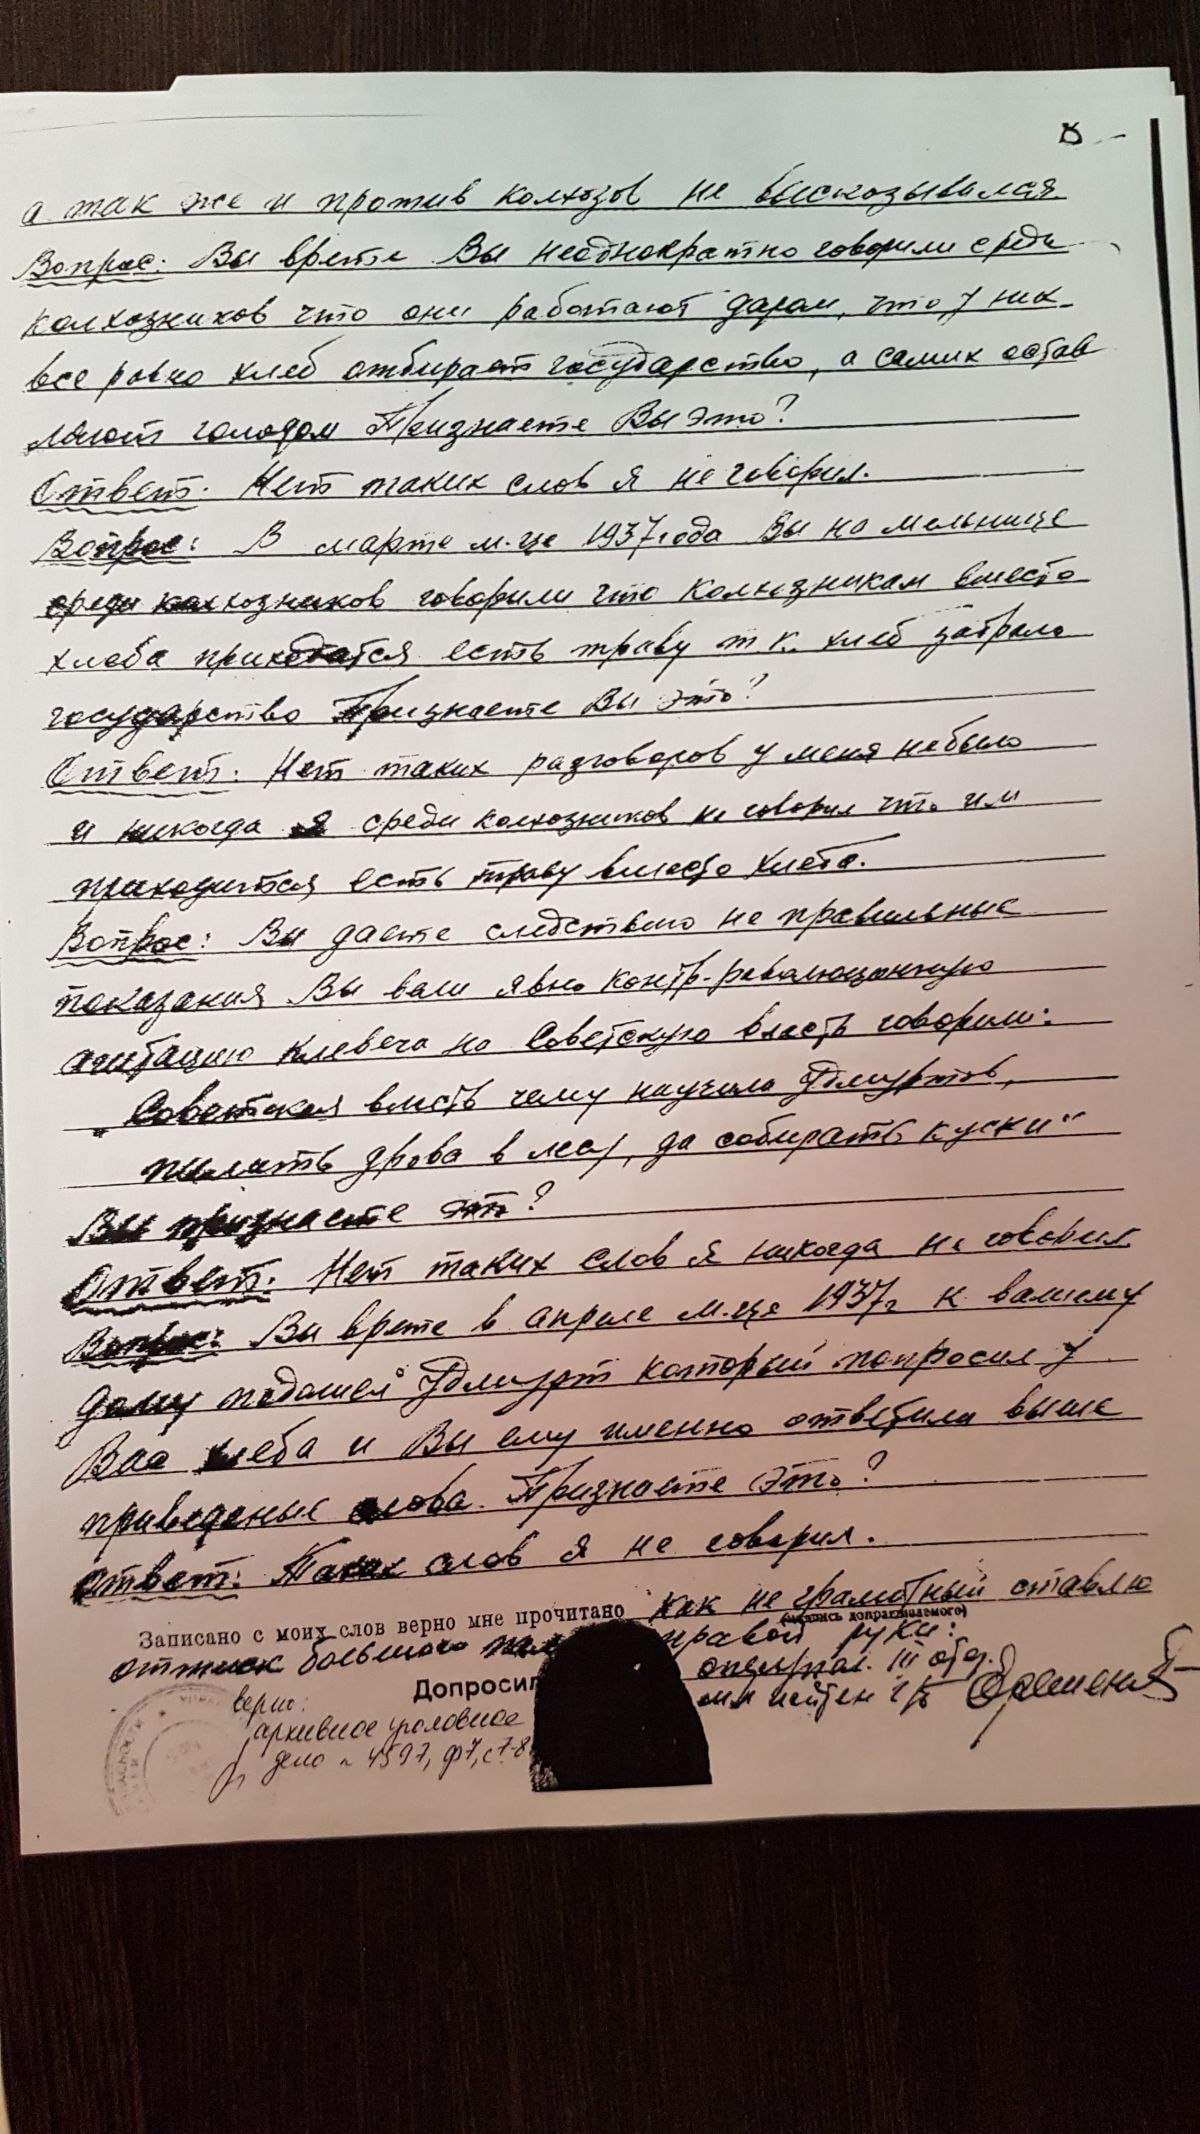 8
а так же и против колхозов не высказывался.
Вопрос: Вы врете Вы неоднократно говорили среди
колхозников что они работают даром, что у них
все равно хлеб отбирает государство, а самих остав
ляют голодом Признаете Вы это?
Ответ. Нет таких слов я не говорил.
Вопрос: В марте м-це 1937 года Вы на мельнице
среди колхозников говорили что колхозникам вместо
хлеба приходится есть траву т.к. хлеб забрало
государство Признаете Вы это?
Ответ. Нет таких разговоров у меня небыло
и никогда я среди колхозников не говорил что им
приходится есть траву вместо хлеба.
Вопрос: Вы даете следствию не правильные
показания Вы вели явно контр-революционную
агитацию клевеча на Советскую власть говорили:
„Советская власть чему научила Удмуртов,
пилить дрова в лесу, да собирать куски"
Вы признаете это?
Ответ: Нет таких слов я никогда не говорил
Вопрос: Вы врете в апреле м-це 1937г к вашему
дому подошел Удмурт который попросил у
Вас хлеба и Вы ему именно ответили выше
приведеные слова. Признаете это?
Ответ: Таких слов я не говорил.
Записано с моих слов верно мне прочитано как не грамотный ставлю
(подпись допрашиваемого)
оттиск большого правой руки:
Допросил опер. III отд.
лейтен г/б
верно:
архивное уголовное
дело № 4597, ф7, с7-8